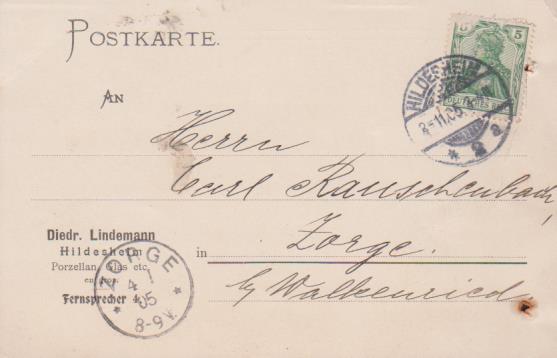 POSTKARTE.
5
DEUTSCHES
HILDESHEIM
3-11.05.
* 2 a
AN
Herrn
Carl Rauschenbach,
in Zorge.
b/ Walkenried
Diedr. Lindemann
Hildesheim
Porzellan, Glas etc.
en gros.
Fernsprecher
ZORGE
4 1
05
8-9 V.